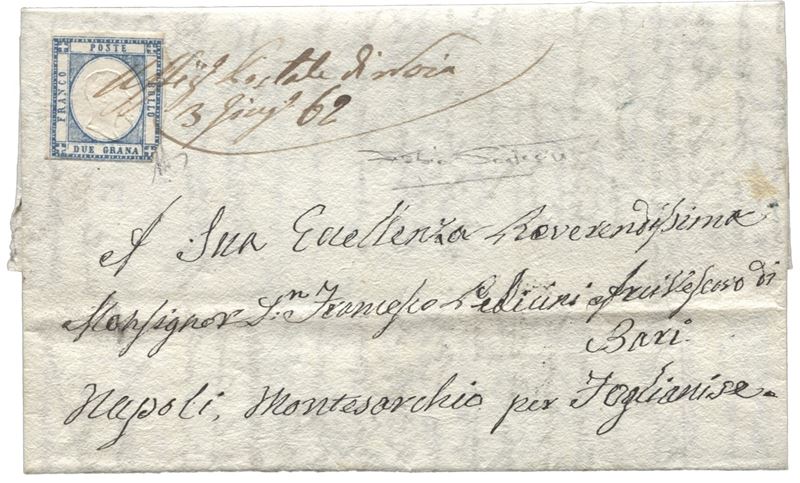 POSTE
FRANCO
BOLLO
DUE GRANA
Postale di Noia
3 Giug° 62
A Sua Eccellenza Reverendissima
Monsignor D.n Francesco Pedicini Arcivescovo di
Bari.
Napoli, Montesarchio per Foglianise.